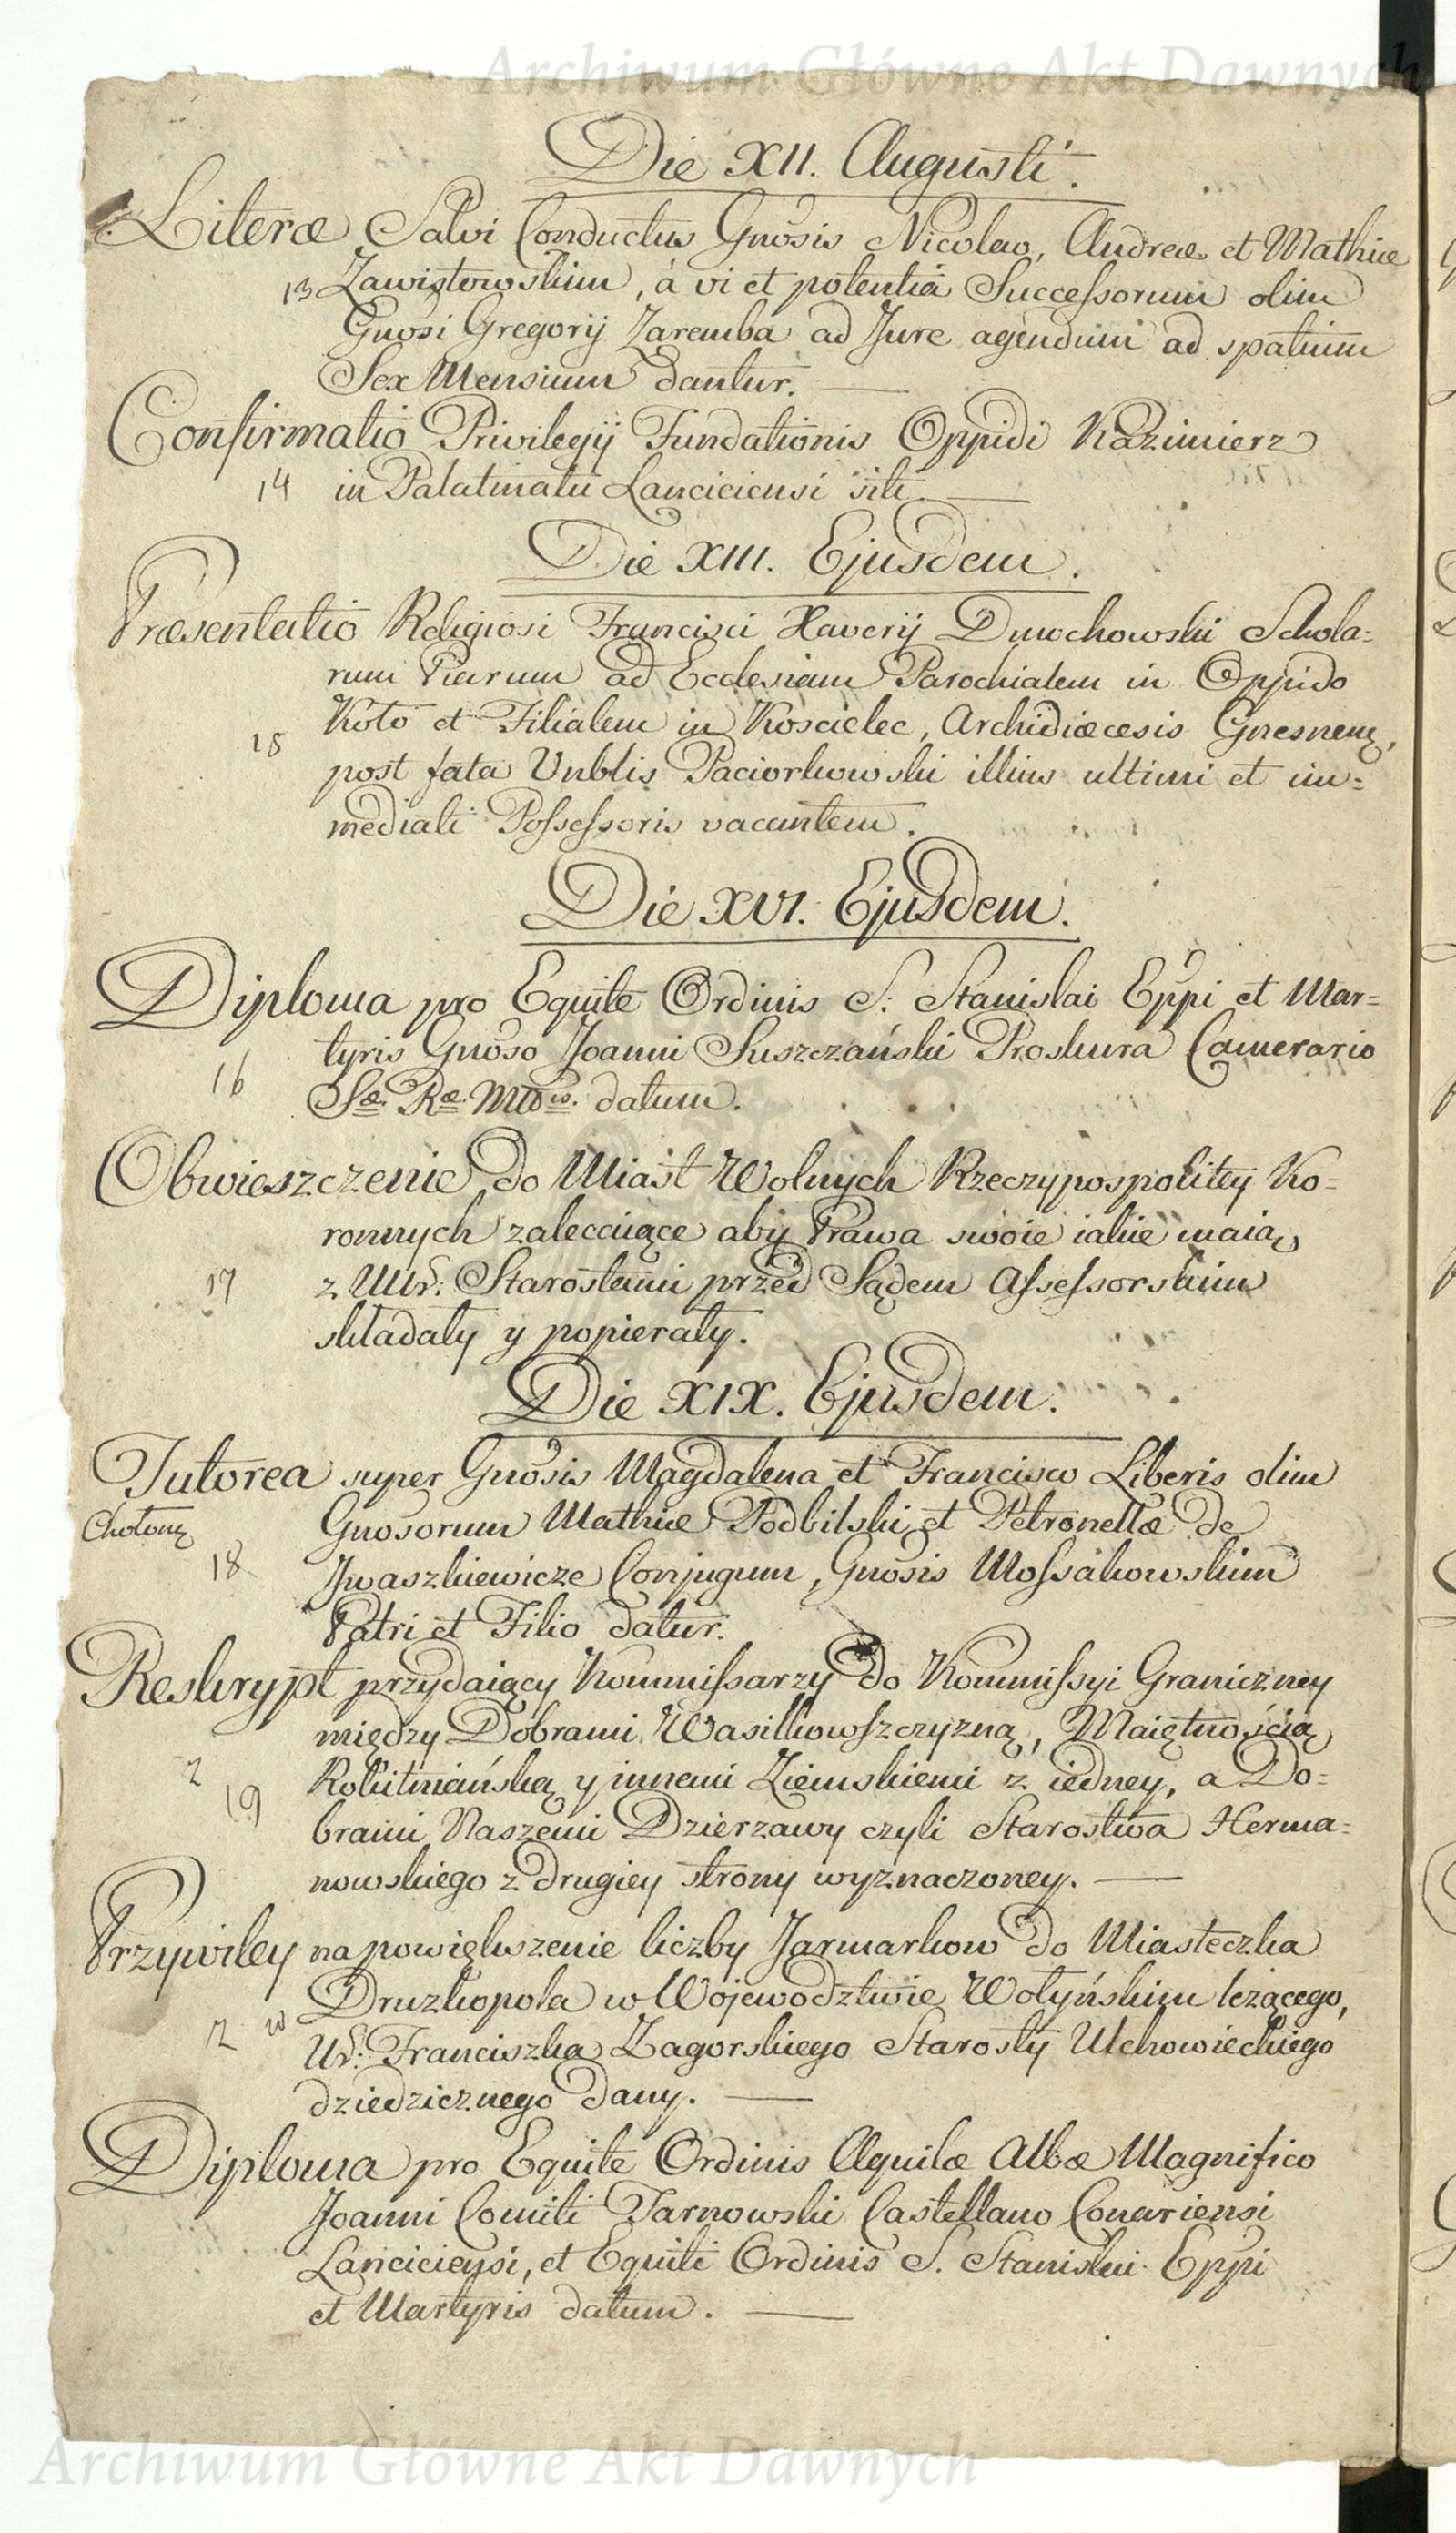 Archiwum Główne Akt Dawnych
Die XII. Augusti.
Literæ Salvi Conductus Gnosis Nicolao, Andreæ et Mathiæ
13 Zawistowskim, à vi et potentiâ Successorum olim
Gnosi Gregorij Zaremba ad Jure agendum ad spatium
Sex Mensium dantur.
Confirmatio Privilegij Fundationis Oppidi Kazimierz
14 in Palatinatu Lanciciensi siti.
Die XIII. Ejusdem.
Præsentatio Religiosi Francisci Xaverij Duwchowski Schola=
rum Piarum ad Ecclesiam Parochialem in Oppido
Koło et Filialem in Koscielec, Archidiæcesis Gnesnen,
15
post fata Vnblis Paciorkowski illius ultimi et im=
mediati Possessoris vacantem.
Die XVI. Ejusdem.
Diploma pro Equite Ordinis S: Stanislai Eppi et Mar=
tyris Gnoso Joanni Suszczański Proskura Camerario
16
Sæ. Ræ. Mttis. datum.
Obwieszczenie do Miast Wolnych Rzeczypospolitey Ko=
ronnych zalecaiące aby Prawa swoie iakie maią
17 z UUr: Starostami przed Sądem Assessorskim
składały y popierały.
Die XIX. Ejusdem.
Tutorea super Gnosis Magdalena et Francisco Liberis olim
Chołonę Gnosorum Mathiæ Podbilski et Petronellæ de
18 Jwaszkiewicze Conjugum, Gnosis Mossakowskim
Patri et Filio datur.
Reskrypt przydaiący Kommissarzy do Kommissyi Graniczney
między Dobrami Wasilkowszczyzną, Maiętnością
2 Rokitniańską y innemi Ziemskiemi z iedney, a Do=
19
brami Naszemi Dzierzawy czyli Starostwa Herma=
nowskiego z drugiey strony wyznaczoney.
Przywiley na powiększenie liczby Jarmarkow do Miasteczka
Druzkopola w Wojewodztwie Wołyńskim leżącego,
Ur: Franciszka Zagorskiego Starosty Uchowieckiego
dziedzicznego dany.
Diploma pro Equite Ordinis Aquilæ Albæ Magnifico
Joanni Comiti Tarnowski Castellano Conariensi
Lanciciensi, et Equiti Ordinis S. Stanislai Eppi
et Martyris datum.
Archiwum Główne Akt Dawnych